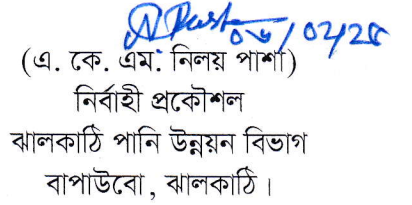 ০৬/০২/২৫
(এ. কে. এম. নিলয় পাশা)
নির্বাহী প্রকৌশল
ঝালকাঠি পানি উন্নয়ন বিভাগ
বাপাউবো, ঝালকাঠি।